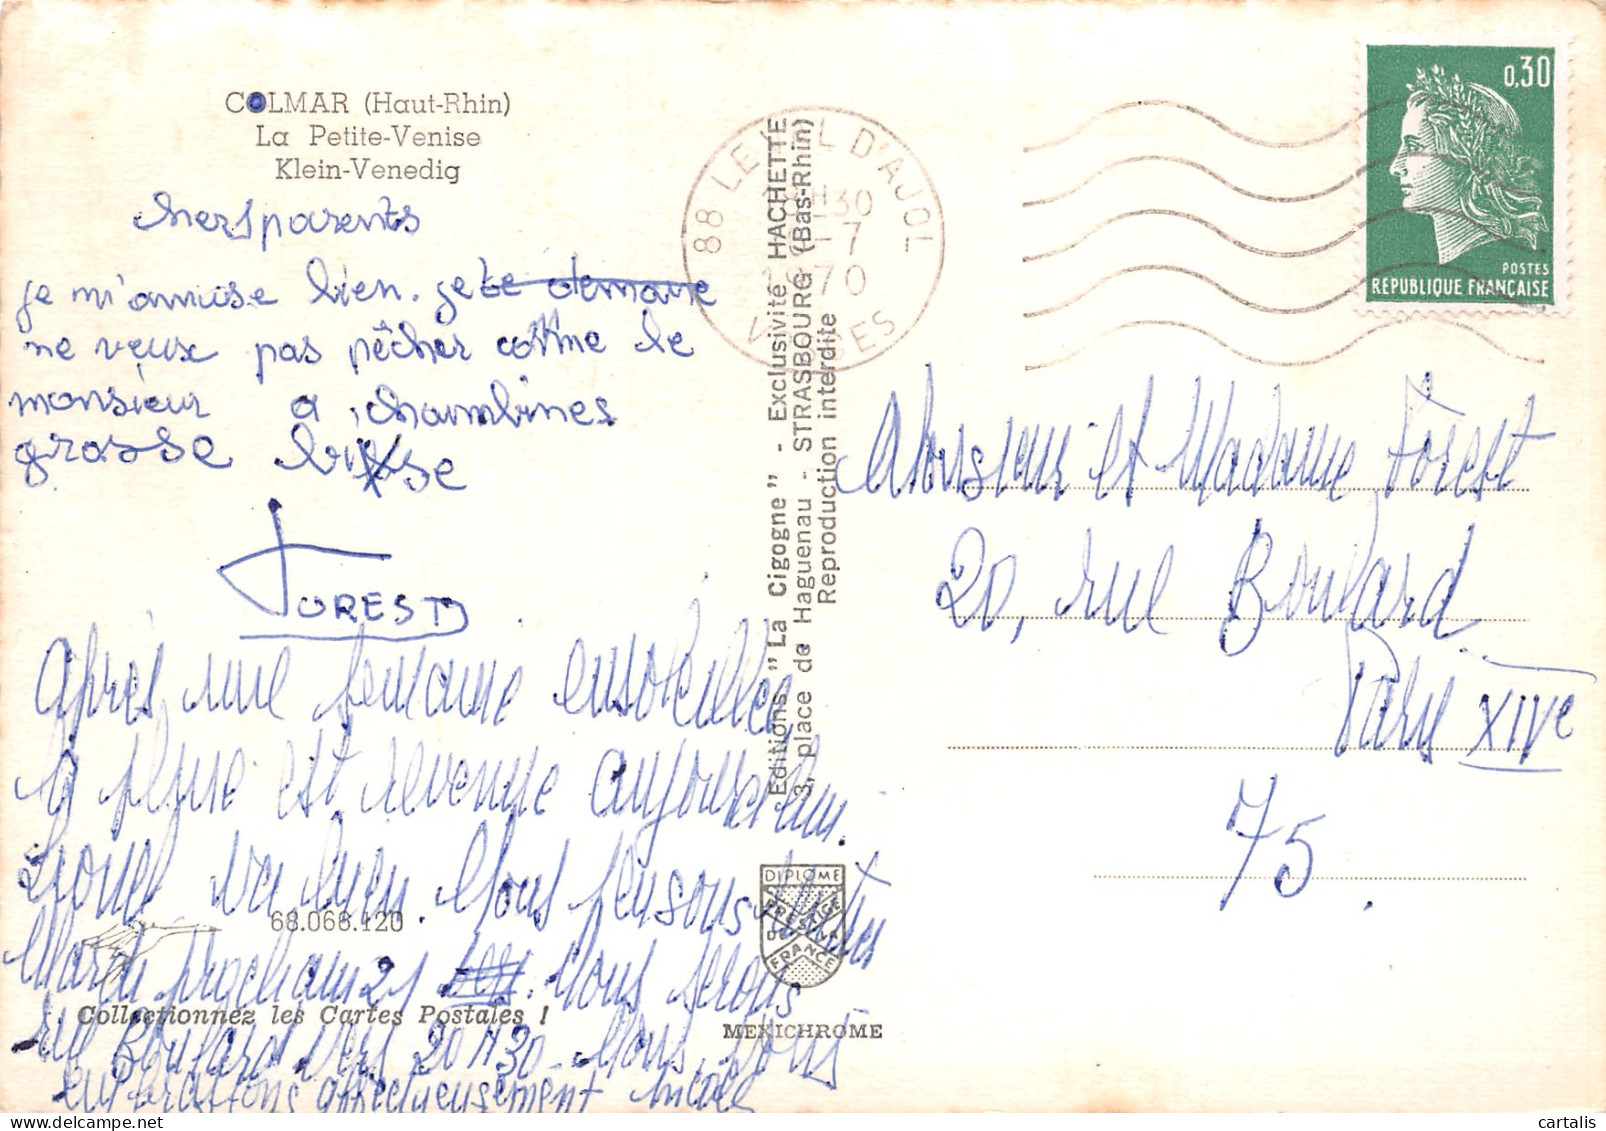 COLMAR (Haut-Rhin)
La Petite-Venise
Klein-Venedig
chers parents
je m'amuse bien. je te demane
ne veux pas pêcher comme le
monsieur a chambines
grosse bise
FOREST
Après une semaine ensoleillée
la pluie est revenue aujourd'hui.
Lionel va bien. Nous pensons
Mardi prochain 21. Nous serons
rue Boulard vers 20 H 30. Nous vous
embrassons affectueusement Nicole
68.068.120
Collectionnez les Cartes Postales !
Editions "La Cigogne" - Exclusivité HACHETTE
3, place de Haguenau - STRASBOURG (Bas-Rhin)
Reproduction interdite
DIPLOME
PRESTIGE
DE LA
FRANCE
MEXICHROME
88 LE VAL D'AJOL
H30
-7
1970
VOSGES
0,30
POSTES
RÉPUBLIQUE FRANÇAISE
Monsieur et Madame Forest
20, rue Boulard
Paris XIVe
75.
cartalis